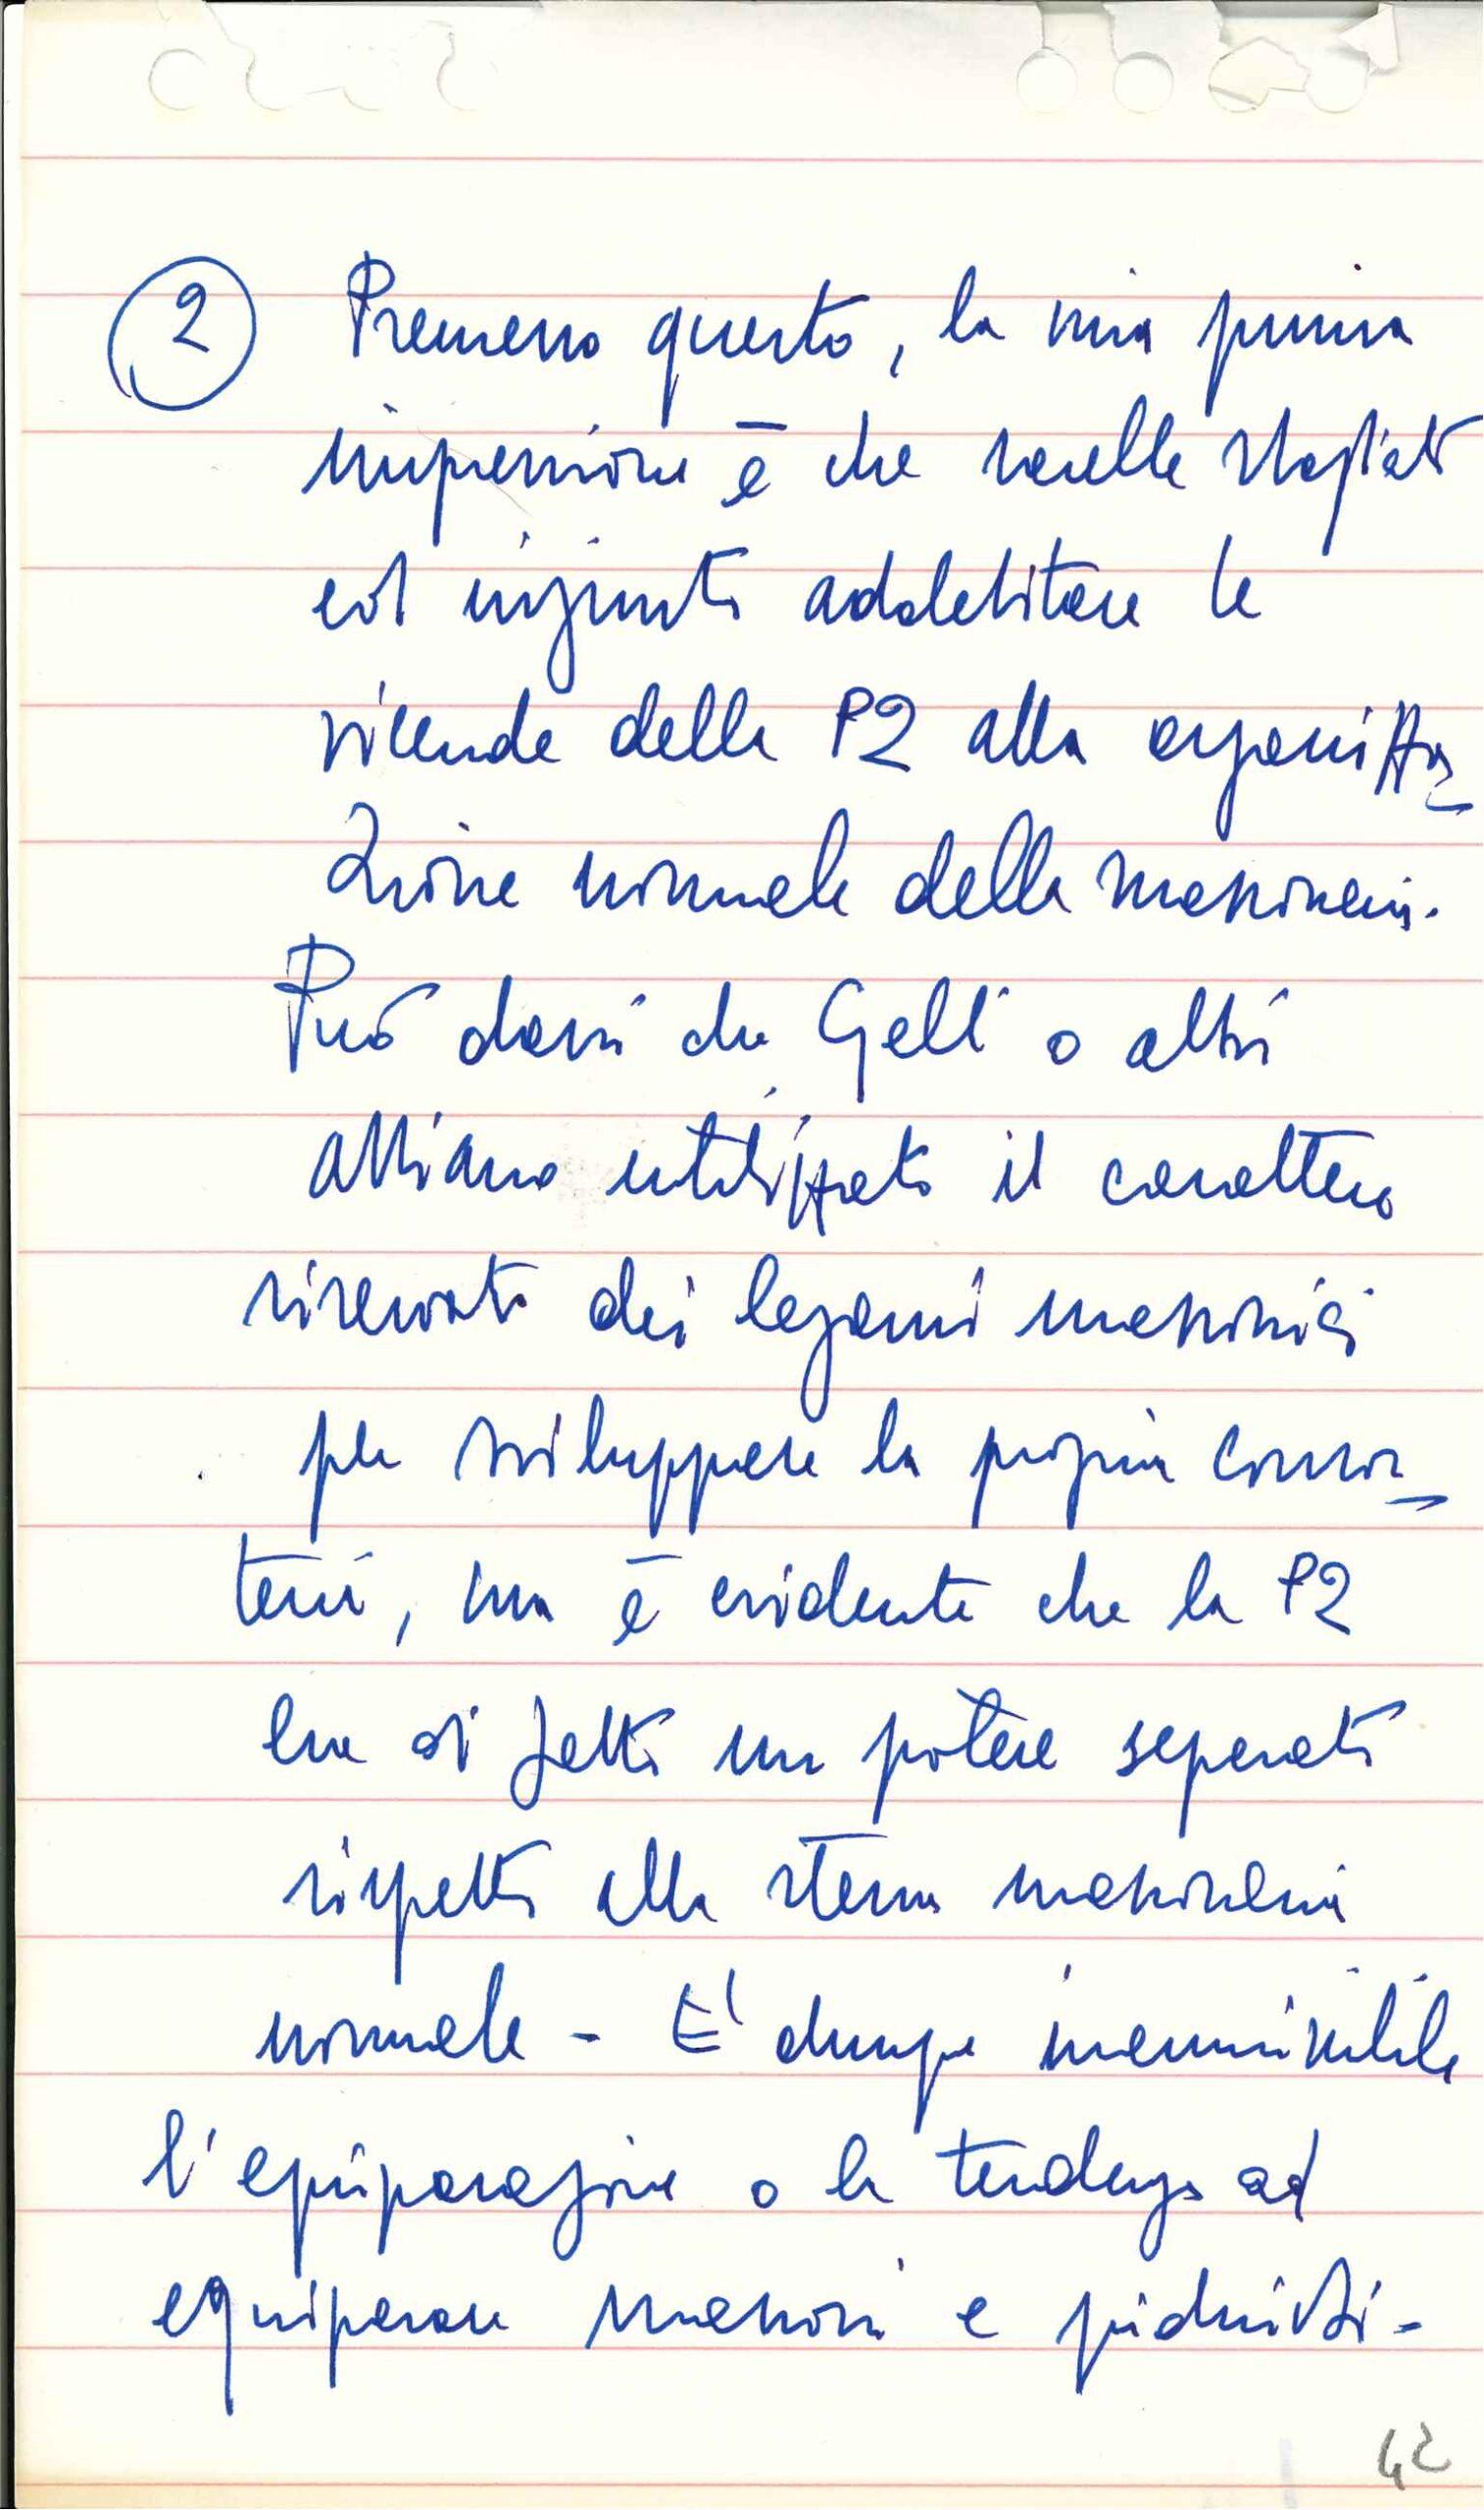 ② Premesso questo, la mia prima
impressione è che sarebbe sbagliato
ed ingiusto addebitare le
vicende della P2 alla organizza
zione normale della massoneria.
Può darsi che Gelli o altri
abbiano utilizzato il carattere
riservato dei legami massonici
per sviluppare la propria consor
teria, ma è evidente che la P2
era di fatto un potere separato
rispetto alla stessa massoneria
normale - E' dunque inammissibile
l'equiparazione o la tendenza ad
equiparare massoni e piduisti -
42